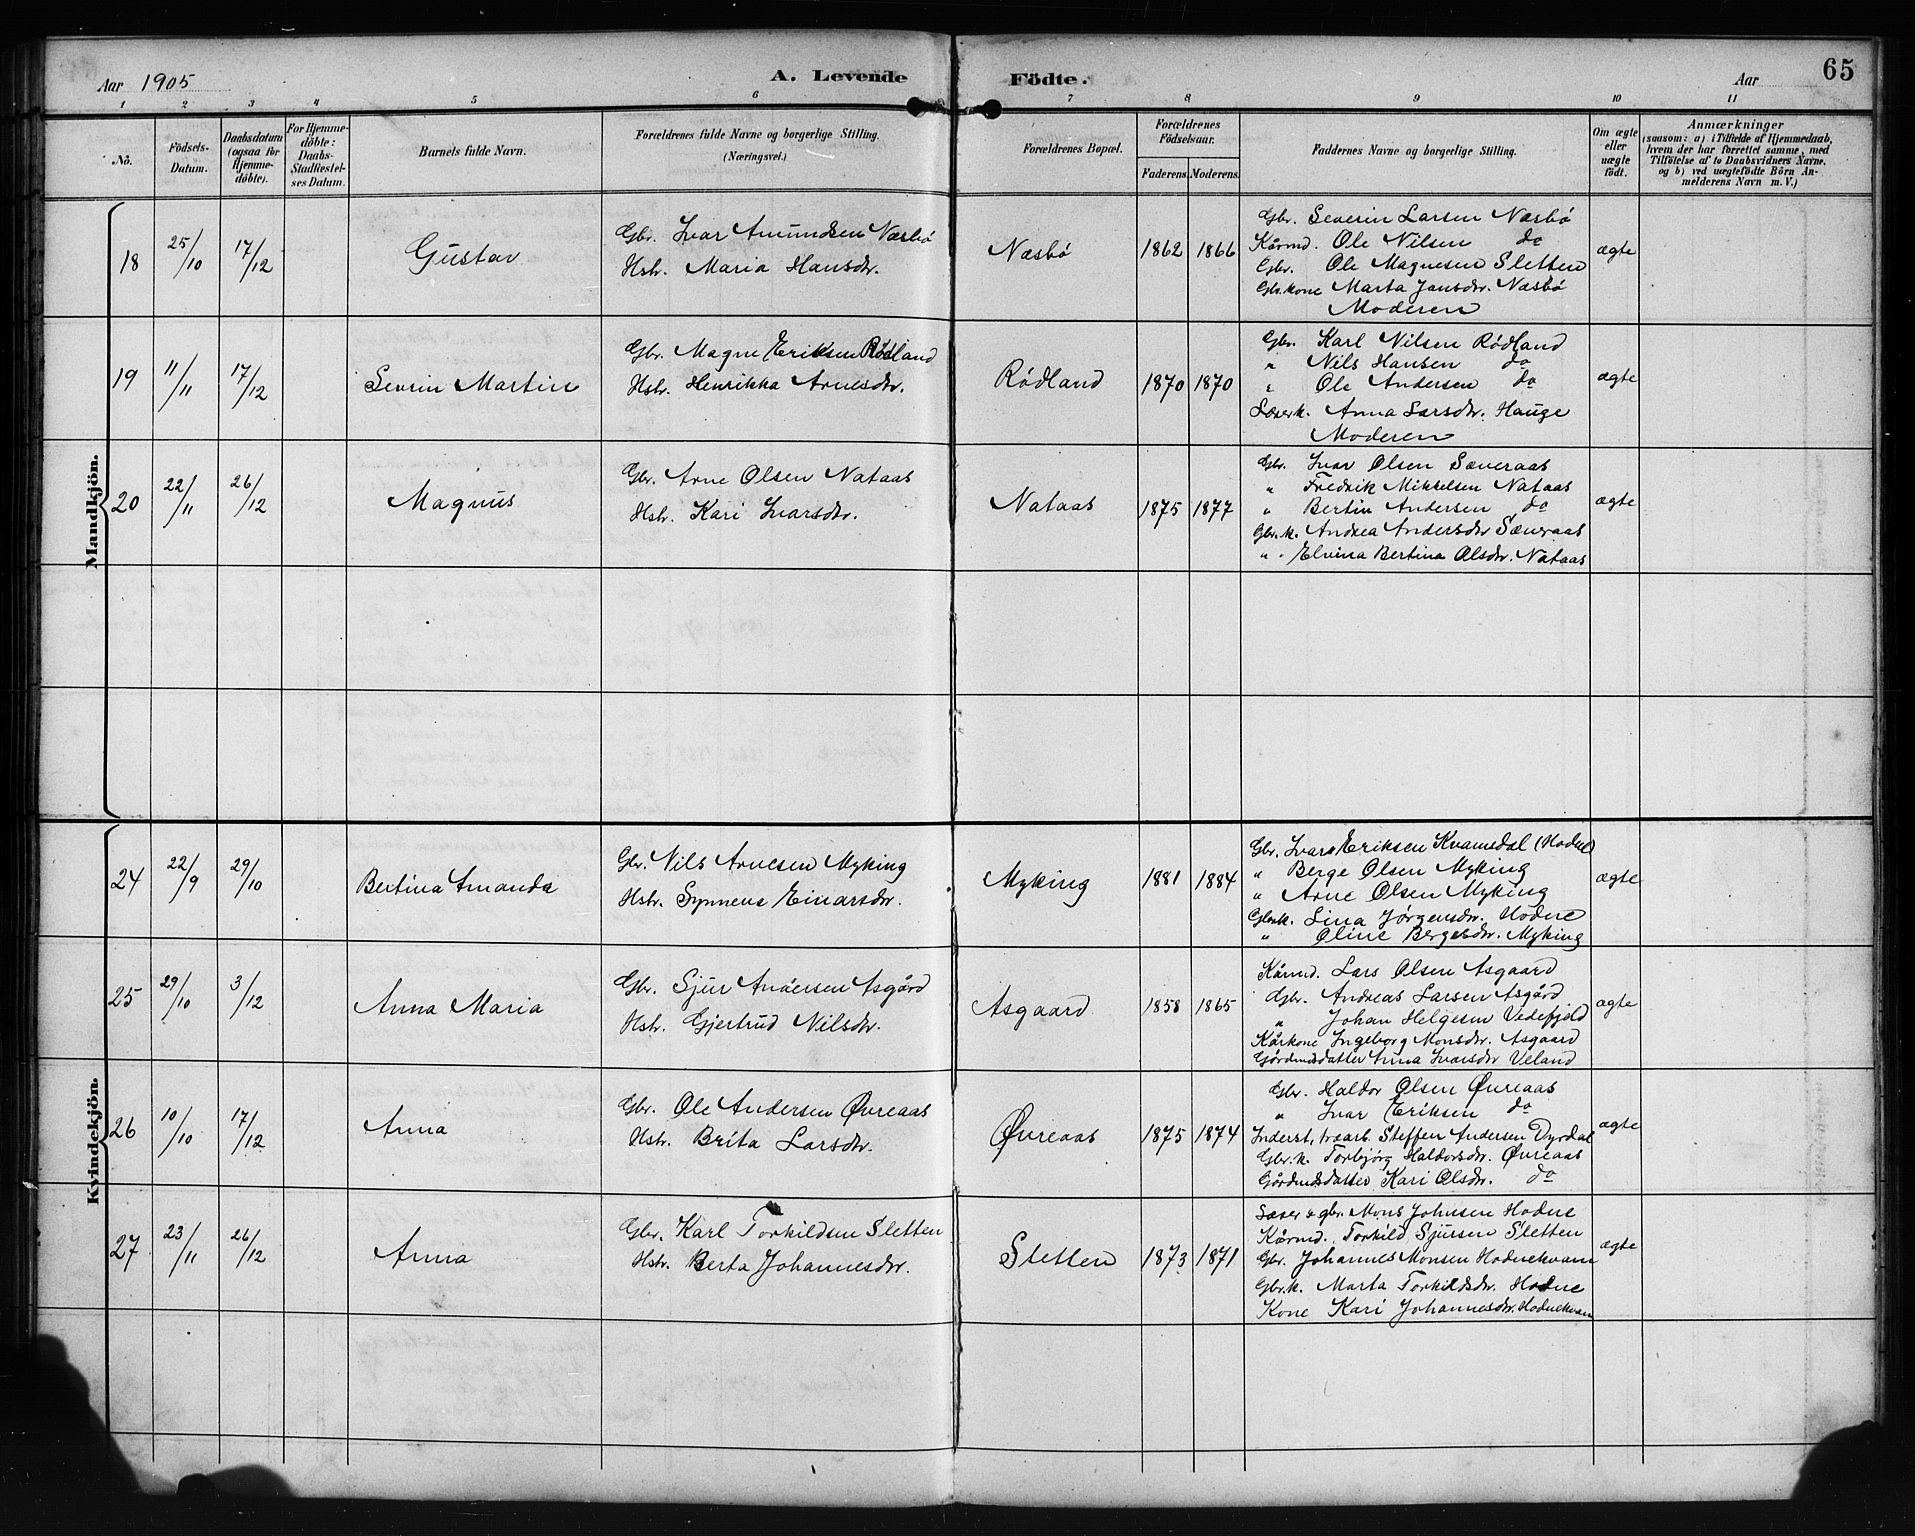 Aar 1905
A. Levende
Födte.
Aar
65
1 2 3 4 5 6 7 8 9 10 11
No.
Födsels-
Datum.
Daabsdatum
(ogsaa for
Hjemme-
döbte).
For Hjemme-
döbte:
Daabs-
Stadfæstel-
ses Datum.
Barnets fulde Navn.
Forældrenes fulde Navne og borgerlige Stilling.
(Næringsvei.)
Forældrenes Bopæl.
Forældrenes
Födselsaar.
Faderens. Moderens.
Faddernes Navne og borgerlige Stilling.
Om ægte
eller
uægte
födt.
Anmærkninger
(saasom: a) i Tilfælde af Hjemmedaab,
hvem der har forrettet samme, med
Tilföielse af to Daabsvidners Navne.
og b) ved uægtefödte Börn An-
melderens Navn m. V.)
Mandkjön.
18 25/10 17/12 Gustav
Gbr. Ivar Amundsen Næsbø
Hstr. Maria Hansdtr.
Næsbø 1862 1866
Gbr. Severin Larsen Næsbø
Kårmd. Ole Nilsen do
Gbr. Ole Magnesen Sletten
Gbr.kone Marta Jansdtr. Næsbø
Moderen
ægte
19 11/11 17/12 Sevrin Martin
Gbr. Magne Eriksen Rødland
Hstr. Henrikka Arnesdtr.
Rødland 1870 1870
Gbr. Karl Nilsen Rødland
" Nils Hansen do
" Ole Andersen do
Læserk. Anna Larsdtr. Hauge
Moderen
ægte
20 22/11 26/12 Magnus
Gbr. Arne Olsen Nataas
Hstr. Kari Ivarsdtr.
Nataas 1875 1877
Gbr. Ivar Olsen Sæveraas
" Fredrik Mikkelsen Nataas
" Bertin Andersen do
Gbr.k. Andrea Andersdtr Sæveraas
" " Elvina Bertina Olsdtr. Nataas
ægte
Kvindekjön.
24 22/9 29/10 Bertina Amanda
Gbr. Nils Arnesen Myking
Hstr. Synneve Einarsdtr.
Myking 1881 1884
Gbr. Ivar Eriksen Kvamsdal (Hodne)
" Berge Olsen Myking
" Arne Olsen Myking
Gbr.k. Lina Jørgensdtr. Hodne
" Oline Bergesdtr. Myking
ægte
25 29/10 3/12 Anna Maria
Gbr. Sjur Andersen Asgård
Hstr. Gjertrud Nilsdtr.
Asgaard 1858 1865
Kårmd. Lars Olsen Asgaard
Gbr. Andreas Larsen Asgård
" Johan Helgesen Vedefjeld
Kårkone Ingeborg Monsdtr. Asgaard
Gårdmdsdatter Anna Ivarsdtr Veland
ægte
26 10/10 17/12 Anna
Gbr. Ole Andersen Øvreaas
Hstr. Brita Larsdtr.
Øvreaas 1875 1874
Gbr. Haldor Olsen Øvreaas
" Ivar Eriksen do
Inderst, træarb. Steffen Andersen Dyrdal
Gbr.k. Torbjørg Haldorsdtr. Øvreaas
Gårdmdsdatter Kari Olsdtr. do
ægte
27 23/11 26/12 Anna
Gbr. Karl Torkildsen Sletten
Hstr. Berta Johannesdtr.
Sletten 1873 1871
Læser & gbr. Mons Johnsen Hodne
Kårmd. Torkild Sjursen Sletten
Gbr. Johannes Monsen Hodnekvam
Gbr.k. Marta Torkildsdtr. Hodne
Kone Kari Johannesdtr. Hodnekvam
ægte